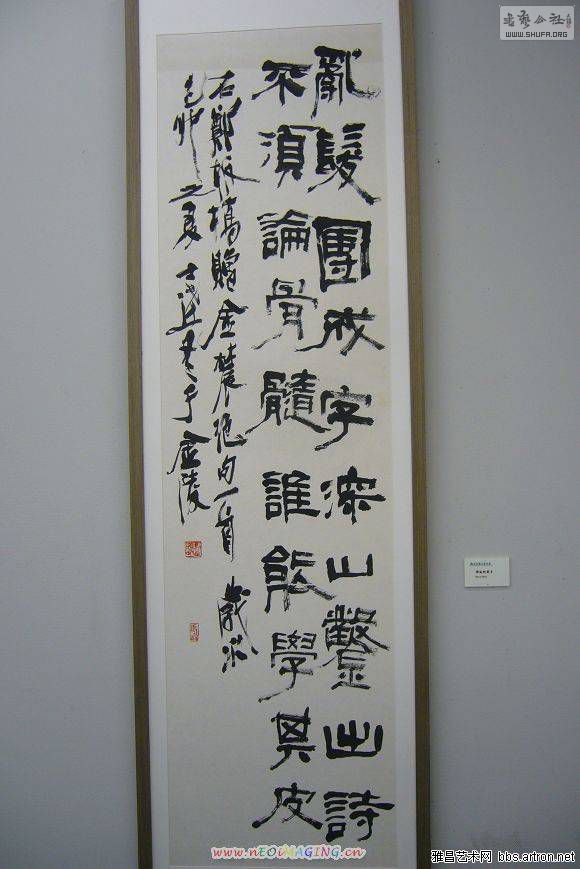 亂髮團成字深山鑿出詩
不須論骨髓誰能學其皮
右鄭板橋贈金農絕句一首歲次
己卯之夏士諤書于金陵
書藝公社
WWW.SHUFA.ORG
www.nEOiMAGING.cn
雅昌艺术网 bbs.artron.net